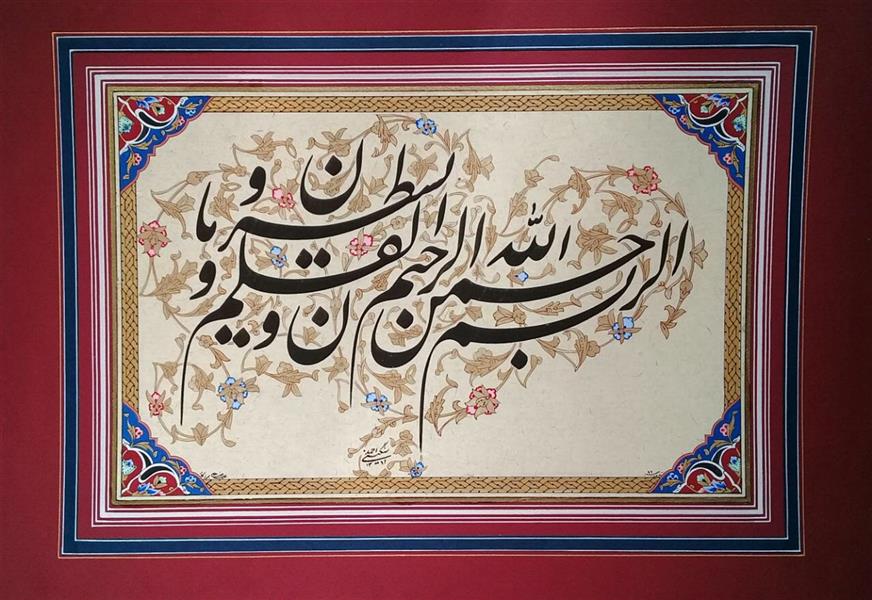 بسم الله الرحمن الرحیم
ن والقلم و ما یسطرون